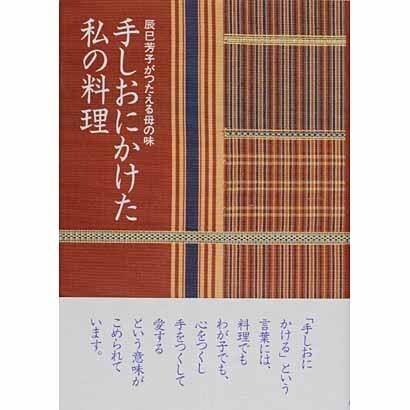 辰巳芳子がつたえる母の味
手しおにかけた
私の料理
「手しおに
かける」という
言葉には、
料理でも
わが子でも、
心をつくし
手をつくして
愛する
という意味が
こめられて
います。